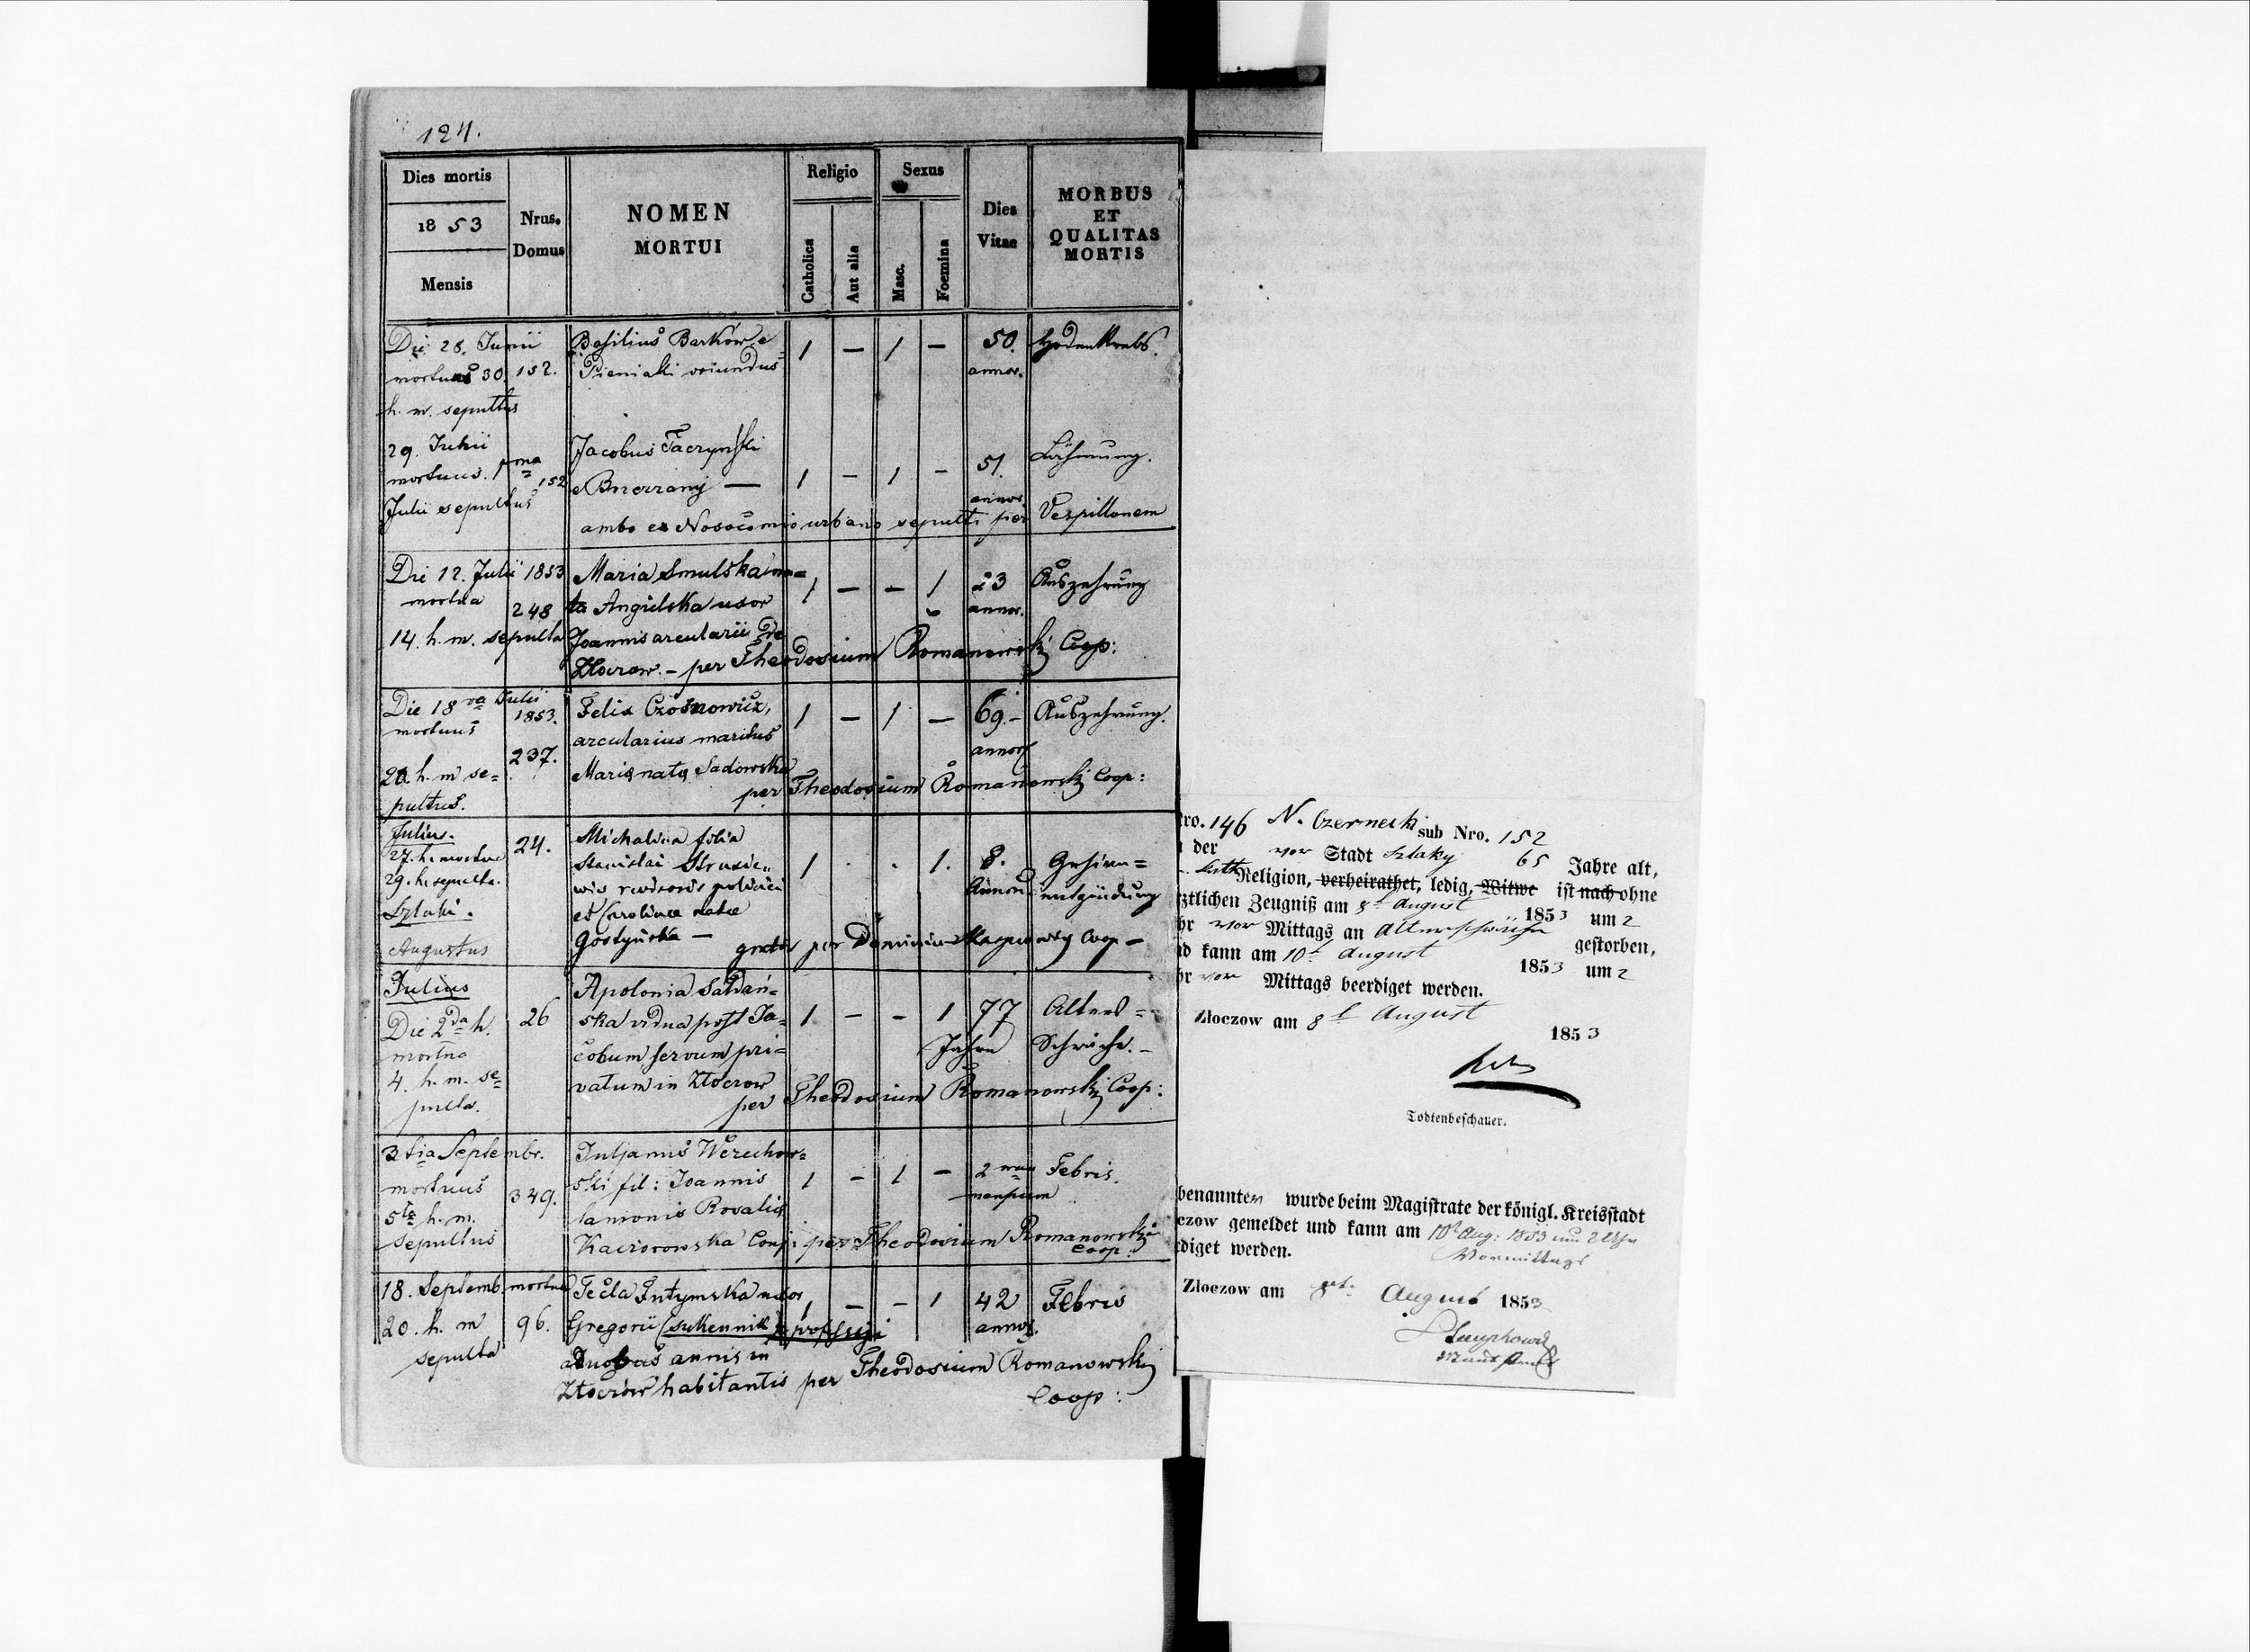 124.
Dies mortis
1853
Mensis
Nrus. Domus
NOMEN
MORTUI
Religio
Catholica
Aut alia
Sexus
Masc.
Foemina
Dies
Vitae
MORBUS
ET
QUALITAS
MORTIS
Die 28. Junii Basilius Barków e 1 — 1 — 50. Hodenkrebs.
mortuus 30 152. Pieniaki oriundus annor.
h. m. sepultus
29. Junii Jacobus Taczynski Lähmung.
mortuus. 1ma 152 e 1 — 1 — 51.
Julii sepultus annor.
ambo ex Nosocomio urbano sepulti per Vespillonem
Die 12. Julii 1853 Maria Smulska na= 1 — — 1 23 Auszehrung
mortua 248 ta Angielska uxor annor.
14. h. m. sepulta Joannis arcularii de
Złoczow. – per Theodosium Romanowskj Coop:
Die 18va Julii Felix Czosnowicz, 1 — 1 — 69.– Auszehrung.
mortuus 1853. arcularius maritus annor
20. h. m se= 237. Maria nata Sadowska
pultus. per Theodosium Romanowskj Coop:
Julius. 24. Michalina filia
27. h. mortua Stanislai 1 . . 1. 8. Gehirn=
29. h. sepulta. annor. entzündung
Sztaki. et Carolinae natae
Augustus Gostyńska —
gratis per Coop —
Julius Apolonia
Die 2da h. 26 ska vidua post Ja= 1 — — 1 77 Alters=
mortua cobum servum pri= Jahre Schwäche.–
4. h. m. se= vatum in Złoczow
pulta. per Theodosium Romanowskj Coop:
3tia Septembr. Juljanus Werechow=
mortuus 349. ski fil: Joannis 1 — 1 — 2 Febris.
5ta h. m. lanionis Rosalia mensium
sepultus Conj: per Theodosium Romanowski
Coop:
18. Septemb. mortua Tecla Intymska uxor 1 — — 1 42 Febris
20. h. m 96. Gregorii (sukennik) annor.
sepulta a duobus annis in
Złoczów habitantis per Theodosium Romanowskj
Coop:
ro. 146 N. Czernecki sub Nro. 152
der vor Stadt Szlaky 65 Jahre alt,
kath Religion, verheirathet, ledig, Witwe ist nach ohne
ztlichen Zeugniß am 8t August 1853 um 2
hr vor Mittags an Altersschwäche gestorben,
d kann am 10t August 1853 um 2
hr vor Mittags beerdiget werden.
Złoczow am 8t August 1853
Todtenbeschauer.
benannten wurde beim Magistrate der königl. Kreisstadt
czow gemeldet und kann am 10t Aug: 1853 um 2 Uhr
diget werden. Vormittags
Złoczow am 8t August 1853